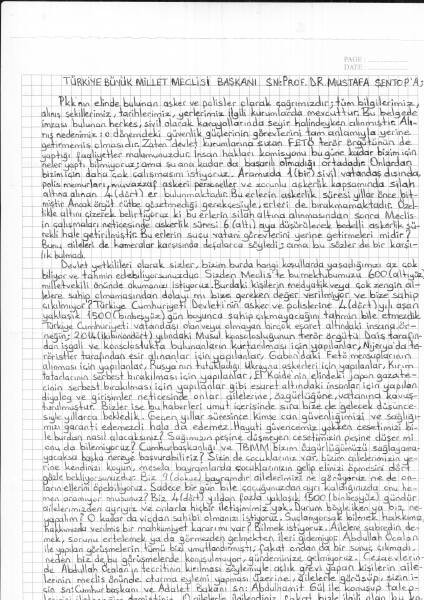 PAGE :
DATE :
TÜRKİYE BÜYÜK MİLLET MECLİSİ BAŞKANI SN: PROF. DR. MUSTAFA ŞENTOP'A;
Pkk nın elinde bulunan asker ve polisler olarak çağrımızdır; tüm bilgilerimiz,
alınış şekillerimiz, tarihlerimiz, yerlerimiz ilgili kurumlarda mevcuttur. Bu belgede
imzası bulunan herkes, sivil olarak karayollarında seyir halindeyken alınmıştır. Alı-
nış nedenimiz; o dönemdeki güvenlik güçlerinin görevlerini tam anlamıyla yerine
getirmemiş olmasıdır. Zaten devlet kurumlarına sızan FETÖ terör örgütünün de
yaptığı faaliyetler malumunuzdur. İnsan hakları komisyonu bugüne kadar bizim için
neler yaptı bilmiyoruz; ama şuana kadar da başarılı olmadığı ortadadır. Onlardan
bizim için daha çok çalışmasını istiyoruz. Aramızda 1(bir) sivil vatandaş dışında,
polis memurları, muvazzaf askeri personeller ve zorunlu askerlik kapsamında silah
altına alınan 4(dört) er bulunmaktadır. Bu erlerin askerlik süresi yıllar önce bit-
miştir. Ancak örgüt rütbe gözetmediği gerekçesiyle, erleri de bırakmamaktadır. Özel-
likle altını çizerek belirtiyoruz ki bu erlerin silah altına alınmasından sonra Meclis
in çalışmaları neticesinde askerlik süresi 6(altı) aya düşürülerek bedelli askerlik sü-
rekli hale getirilmiştir. Bu erlerin suçu vatani görevlerini yerine getirmeleri midir?
Bunu aileleri de kameralar karşısında defalarca söyledi; ama bu sözler de bir karşı-
lık bulmadı.
Devlet yetkilileri olarak sizler, bizim burda hangi koşullarda yaşadığımızı az çok
biliyor ve tahmin edebiliyorsunuzdur. Sizden Meclis'te bu mektubumuzu 600 (altıyüz)
milletvekili önünde okumanızı istiyoruz. Burdaki kişilerin medyatik veya çok zengin ai-
lelere sahip olmamasından dolayı mı bize gereken değer verilmiyor ve bize sahip
çıkılmıyor? Türkiye Cumhuriyeti Devleti'nin asker ve polislerine 4(dört) yılı aşan
yaklaşık 1500 (binbeşyüz) gün boyunca sahip çıkmayacağını tahmin bile etmezdik.
Türkiye Cumhuriyeti vatandaşı olan veya olmayan birçok esaret altındaki insana, ör-
neğin; 2014 (ikibinondört) yılındaki Musul konsolosluğunun terör örgütü Daiş tarafın-
dan işgali ve konsoloslukta bulunanların kurtarılması için yapılanlar, Nijerya'da te-
röristler tarafından esir alınanlar için yapılanlar, Gabon'daki Fetö mensuplarının
alınması için yapılanlar, Rusya'nın tutukladığı Ukrayna askerleri için yapılanlar, Kırım
tatarlarının serbest bırakılması için yapılanlar, El Kaide'nin elindeki Japon gazete-
cinin serbest bırakılması için yapılanlar gibi esaret altındaki insanlar için yapılan
diyalog ve girişimler neticesinde onlar; ailelerine, özgürlüğüne, vatanına kavuş-
turulmuştur. Bizler ise bu haberleri umut içerisinde sıra bize de gelecek düşünce-
siyle yıllarca bekledik. Geçen yıllar süresince kimse can güvenliğimizi ve sağlığı-
mızı garanti edemezdi hala da edemez. Hayati güvencemiz yokken cesetimizi bi-
le burdan nasıl alacaksınız? Sağımızın peşine düşmeyen cesetimizin peşine düşer mi
onu da bilemiyoruz? Cumhurbaşkanlığı ve TBMM bizim özgürlüğümüzü sağlayama-
yacaksa başka nereye başvurabiliriz? Sizin de çocuklarınız var, bizim ailelerimizin ye-
rine kendinizi koyun, mesela bayramlarda çocuklarınızın gelip elinizi öpmesini dört
gözle bekliyorsunuzdur. Biz 9 (dokuz) bayramdır ailelerimizi ne görüyoruz ne de on-
ların ellerini öpebiliyoruz. Sadece bir gün bile çocuğunuzdan ayrı kaldığınızda onu he-
men aramıyor musunuz? Biz 4(dört) yıldan fazla yaklaşık 1500 (binbeşyüz) gündür
ailelerimizden ayrıyız ve onlarla hiçbir iletişimimiz yok. Durum böyleyken ya biz, ne
yapalım? O kadar da vicdan sahibi olmanızı istiyoruz. Suçlanıyorsak bilmek hakkımız,
hakkımızda verilmiş bir mahkumiyet kararımı var? Bilmek istiyoruz. Ailelere sabredin de-
mek, sorunu ertelemek ya da görmezden gelmekten ileri gidemiyor. Abdullah Öcalan
ile yapılan görüşmelerin tümü bizi umutlandırmıştı; fakat ondan da bir sonuç çıkmadı,
neden biz de bu görüşmelerde konuşulmuyor, gündeminize gelmiyoruz. Cezaevlerin-
de Abdullah Öcalan'ın tecritinin kırılması söylemiyle açlık grevi yapan kişilerin aile-
lerinin meclis önünde oturma eylemi yapması üzerine, ailelerle görüşüp, sizin i-
çin sn: Cumhurbaşkanı ve Adalet Bakanı sn: Abdulhamit Gül ile konuşup talep-